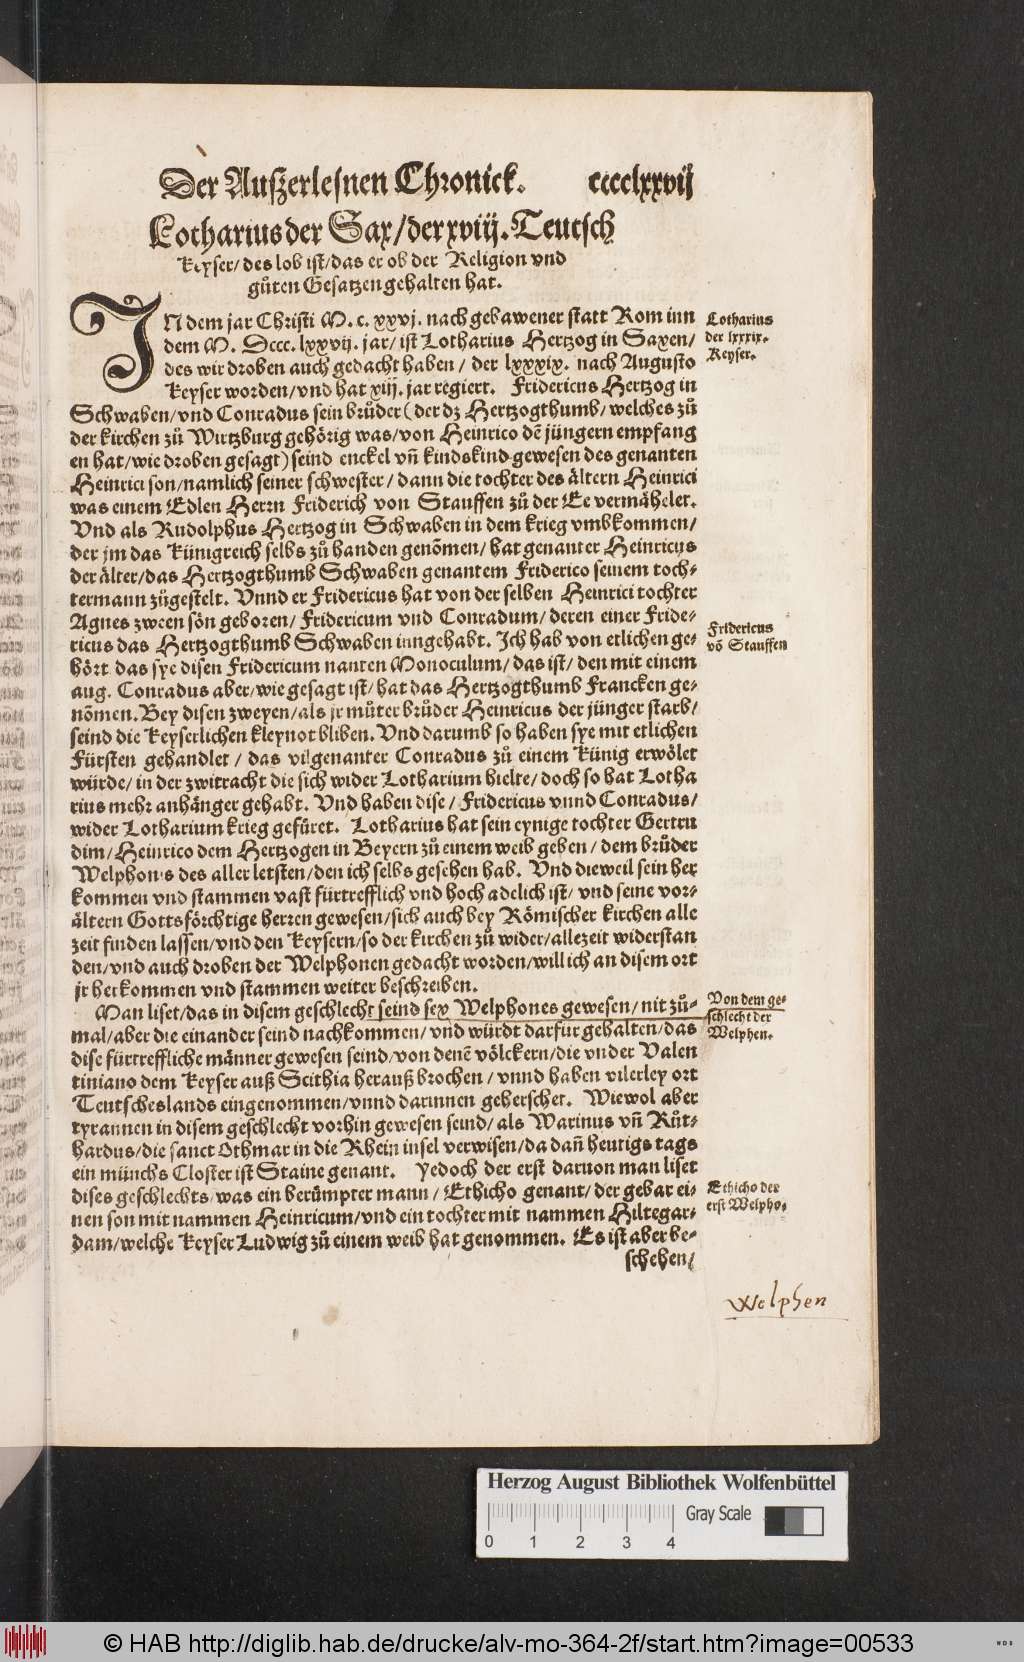 Der Außerlesnen Chronick. cccclxxvij
Lotharius der Sax/ der xviij. Teutsch
Keyser/ des lob ist/ das er ob der Religion vnd
gůten Gesatzen gehalten hat.
IN dem jar Christi M. c. xxvj. nach gebawener statt Rom inn
dem M. Dccc. lxxvij. jar/ ist Lotharius Hertzog in Saxen/
des wir droben auch gedacht haben/ der lxxxix. nach Augusto
Keyser worden/ vnd hat xiij. jar regiert. Fridericus Hertzog in
Schwaben/ vnd Conradus sein brůder (der dz Hertzogthumb/ welches zů
der kirchen zů Wirtzburg gehörig was/ von Heinrico dẽ jüngern empfang
en hat/ wie droben gesagt) seind enckel vñ kindskind gewesen des genanten
Heinrici son/ namlich seiner schwester/ dann die tochter des ältern Heinrici
was einem Edlen Herrn Friderich von Stauffen zů der Ee vermähelet.
Vnd als Rudolphus Hertzog in Schwaben in dem krieg vmbkommen/
der jm das Künigreich selbs zů handen genõmen/ hat genanter Heinricus
der älter/ das Hertzogthumb Schwaben genantem Friderico seinem toch-
termann zůgestelt. Vnnd er Fridericus hat von der selben Heinrici tochter
Agnes zween sön geboren/ Fridericum vnd Conradum/ deren einer Fride-
ricus das Hertzogthumb Schwaben inngehabt. Ich hab von etlichen ge-
hört das sye disen Fridericum nanten Monoculum/ das ist/ den mit einem
aug. Conradus aber/ wie gesagt ist/ hat das Hertzogthumb Francken ge-
nõmen. Bey disen zweyen/ als jr můter brůder Heinricus der jünger starb/
seind die Keyserlichen kleynot bliben. Vnd darumb so haben sye mit etlichen
Fürsten gehandlet/ das vilgenanter Conradus zů einem Künig erwölet
würde/ in der zwitracht die sich wider Lotharium hielte/ doch so hat Lotha
rius mehr anhänger gehabt. Vnd haben dise/ Fridericus vnnd Conradus/
wider Lotharium krieg gefüret. Lotharius hat sein eynige tochter Gertru
dim/ Heinrico dem Hertzogen in Beyern zů einem weib geben/ dem brůder
Welphonis des aller letsten/ den ich selbs gesehen hab. Vnd dieweil sein her
kommen vnd stammen vast fürtrefflich vnd hoch adelich ist/ vnd seine vor-
ältern Gottsförchtige herren gewesen/ sich auch bey Römischer kirchen alle
zeit finden lassen/ vnd den Keysern/ so der kirchen zů wider/ allezeit widerstan
den/ vnd auch droben der Welphonen gedacht worden/ will ich an disem ort
jr herkommen vnd stammen weiter beschreiben.
Man liset/ das in disem geschlecht seind sex Welphones gewesen/ nit zů-
mal/ aber die einander seind nachkommen/ vnd würdt darfür gehalten/ das
dise fürtreffliche männer gewesen seind/ von denẽ völckern/ die vnder Valen
tiniano dem Keyser auß Scithia heraußbrochen/ vnnd haben vilerley ort
Teutscheslands eingenommen/ vnnd darinnen geherschet. Wiewol aber
tyrannen in disem geschlecht vorhin gewesen seind/ als Warinus vñ Růt-
hardus/ die sanct Othmar in die Rhein insel verwisen/ da dañ heutigs tags
ein münchs Closter ist Staine genant. Yedoch der erst daruon man liset
dises geschlechts/ was ein berümpter mann/ Ethicho genant/ der gebar ei-
nen son mit nammen Heinricum/ vnd ein tochter mit nammen Hiltegar-
dam/ welche Keyser Ludwig zů einem weib hat genommen. Es ist aber be-
schehen/
Lotharius
der lxxxix.
Keyser.
Fridericus
võ Stauffen
Von dem ge-
schlecht der
Welphen.
Ethicho der
erst Welpho.
Welphen
Herzog August Bibliothek Wolfenbüttel
Gray Scale
0 1 2 3 4
© HAB http://diglib.hab.de/drucke/alv-mo-364-2f/start.htm?image=00533